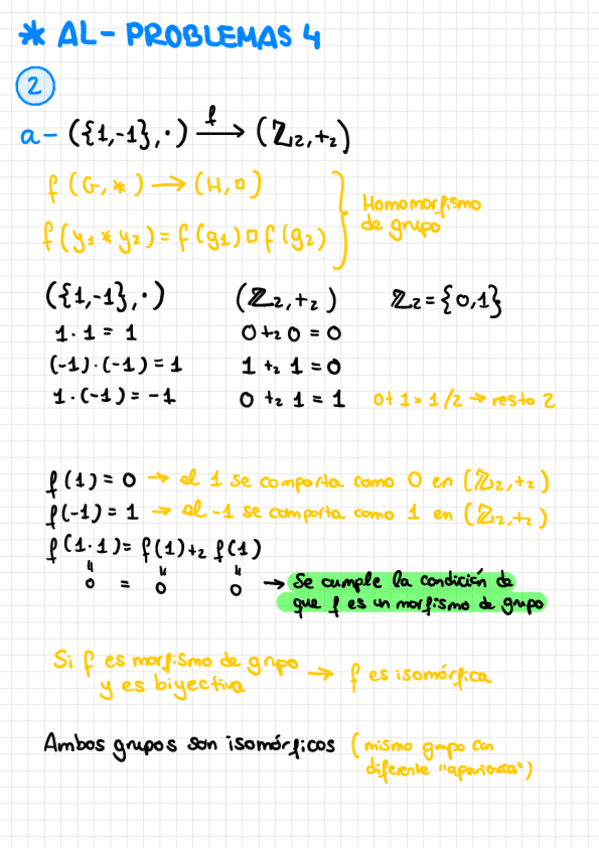 * AL- PROBLEMAS 4
2
a- ({1,-1}, ·) f→ (ℤ₂,+₂)
f (G, *) → (H, □)
f (y₁ * y₂) = f(g₁) □ f(g₂)
Homomorfismo
de grupo
({1,-1}, ·) (ℤ₂,+₂) ℤ₂ = {0,1}
1 · 1 = 1 0 +₂ 0 = 0
(-1) · (-1) = 1 1 +₂ 1 = 0
1 · (-1) = -1 0 +₂ 1 = 1 0+ 1 = 1/2 → resto 2
f(1) = 0 → el 1 se comporta como 0 en (ℤ₂,+₂)
f(-1) = 1 → el -1 se comporta como 1 en (ℤ₂,+₂)
f(1·1) = f(1) +₂ f(1)
" " "
0 = 0 0 → Se cumple la condición de
que f es un morfismo de grupo
Si f es morfismo de grupo
y es biyectiva → f es isomórfica
Ambos grupos son isomórficos (mismo grupo con
diferente "apariencia")